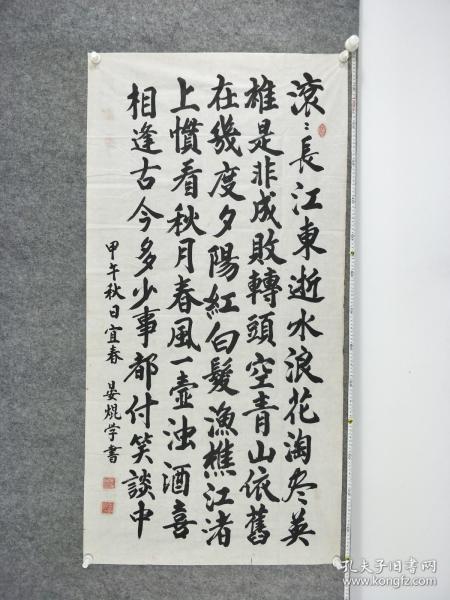 滚〻長江東逝水浪花淘尽英
雄是非成敗轉頭空青山依舊
在幾度夕陽紅白髮漁樵江渚
上慣看秋月春風一壺浊酒喜
相逢古今多少事都付笑談中
甲午秋日宜春 晏焜学書
孔夫子旧书网
www.kongfz.com